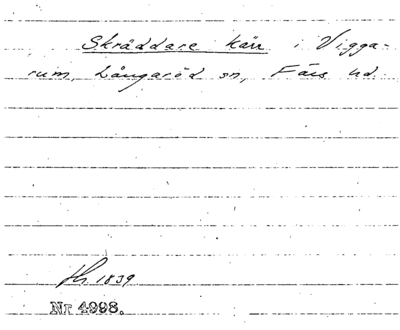 Skräddare kärr i Vigga-
rum, Långaröd sn, Färs hd.
1839
Nr 4998.